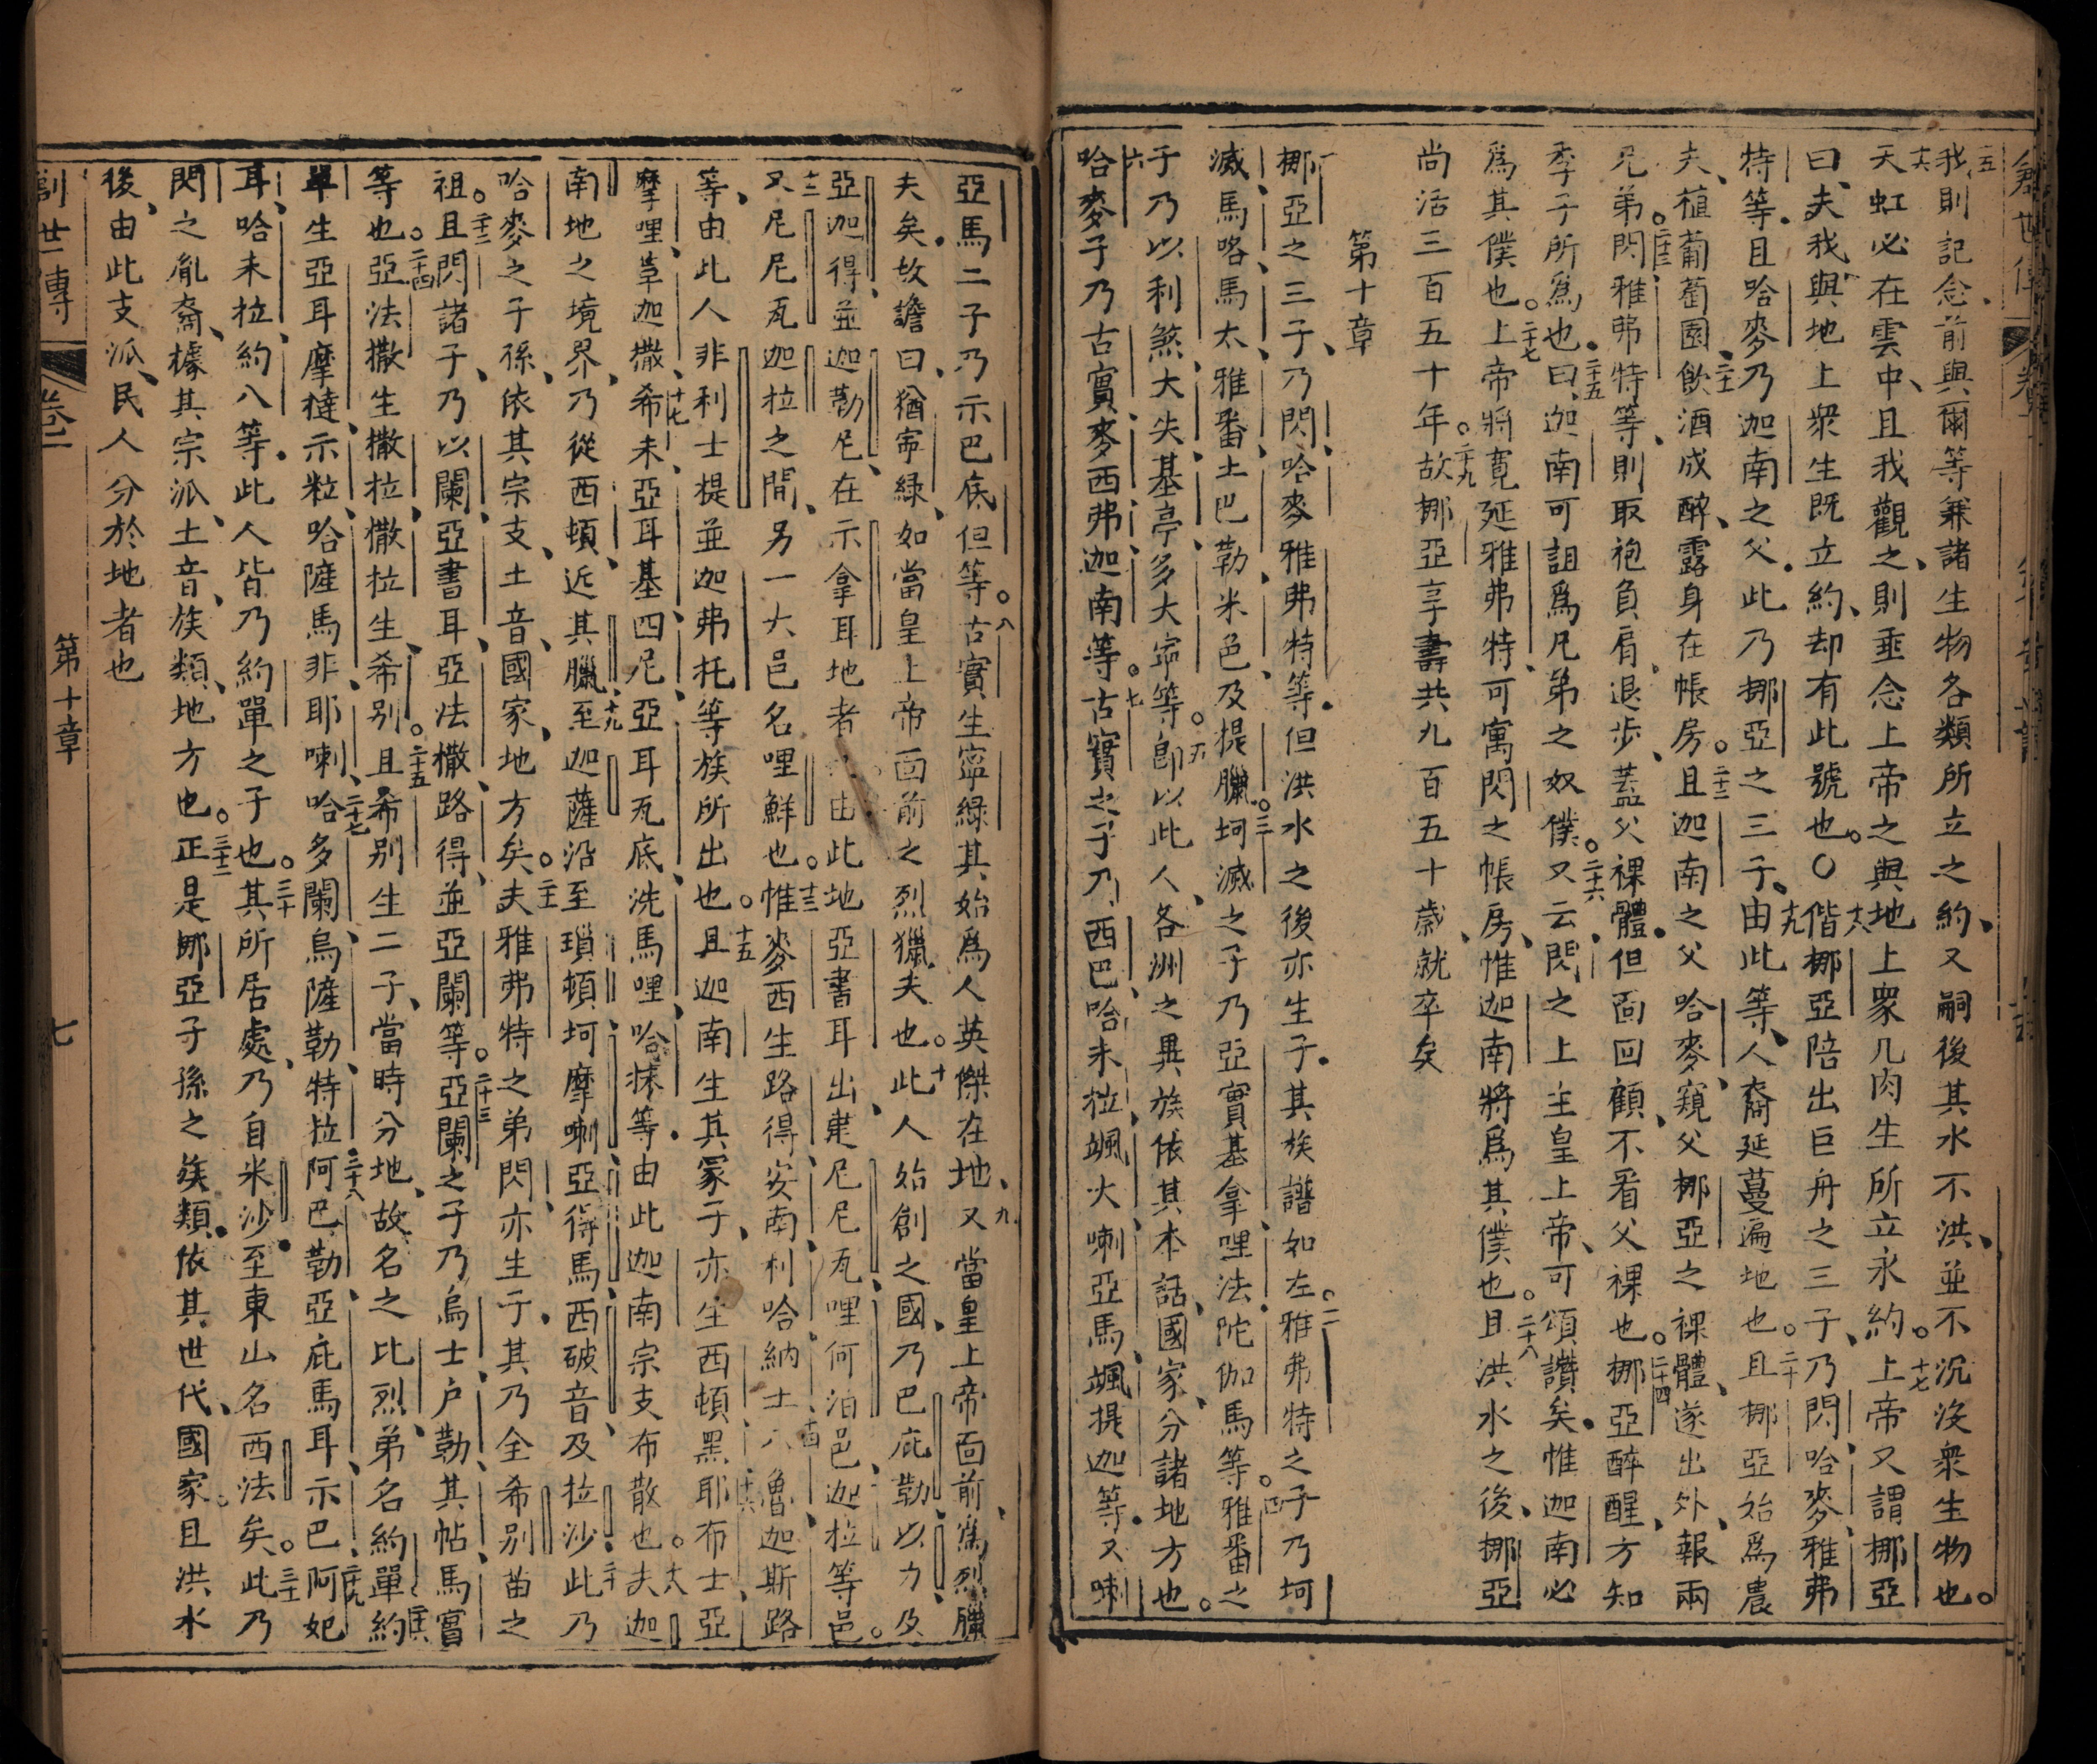 我則記念前與爾等兼諸生物各類所立之約又嗣後其水不洪並不沉沒衆生物也
天虹必在雲中且我觀之則垂念上帝之與地上衆凡肉生所立永約上帝又謂挪亞
曰夫我與地上衆生既立約却有此號也〇偕挪亞陪出巨舟之三子乃閃哈麥雅弗
特等且哈麥乃迦南之父此乃挪亞之三子由此等人裔延蔓遍地也且挪亞始爲農
夫植葡萄園飲酒成醉露身在帳房且迦南之父哈麥窺父挪亞之裸體遂出外報兩
兄弟閃雅弗特等則取袍負肩退步蓋父裸體但面回顧不看父裸也挪亞醉醒方知
季子所爲也曰迦南可詛爲兄弟之奴僕又云閃之上主皇上帝可頌讚矣惟迦南必
爲其僕也上帝將寬延雅弗特可寓閃之帳房惟迦南將爲其僕也且洪水之後挪亞
尚活三百五十年故挪亞享壽共九百五十歲就卒矣
第十章
挪亞之三子乃閃哈麥雅弗特等但洪水之後亦生子其族譜如左雅弗特之子乃坷
滅馬咯馬太雅番土巴勒米色及提臘坷滅之子乃亞實基拿哩法陀伽馬等雅番之
子乃以利煞大失基亭多大寗等卽以此人各洲之異族依其本話國家分諸地方也
哈麥子乃古實麥西弗迦南等古實之子乃西巴哈未拉颯大喇亞馬颯提迦等又喇
亞馬二子乃示巴底但等古實生寧綠其始爲人英傑在地又當皇上帝面前爲烈臘
夫矣故譫曰猶寗綠如當皇上帝面前之烈獵夫也此人始創之國乃巴庇勒以力及
亞迦得並迦勒尼在示拿耳地者由此地亞書耳出建尼尼瓦哩何泊邑迦拉等邑
又尼尼瓦迦拉之間另一大邑名哩鮮也惟麥西生路得安南利哈納土八魯迦斯路
等由此人非利士提並迦弗托等族所出也且迦南生其冢子亦生西頓黑耶布士亞
摩哩革迦撒希未亞耳基四尼亞耳瓦底洗馬哩哈抹等由此迦南宗支布散也夫迦
南地之境界乃從西頓近其臘至迦薩沿至瑣頓坷摩喇亞得馬西破音及拉沙此乃
哈麥之子孫依其宗支土音國家地方矣夫雅弗特之弟閃亦生子其乃全希别苗之
祖且閃諸子乃以闌亞書耳亞法撒路得並亞闌等亞闌之子乃烏士户勒其帖馬實
等也亞法撒生撒拉撒拉生希别且希别生二子當時分地故名之比烈弟名約單約
單生亞耳摩㨐示粒哈薩馬非耶喇哈多闌烏薩勒特拉阿巴勒亞庇馬耳示巴阿妃
耳哈未拉約八等此人皆乃約單之子也其所居處乃自米沙至東山名西法矣此乃
閃之胤裔據其宗派土音族類地方也正是挪亞子孫之族類依其世代國家且洪水
後由此支派民人分於地者也
創世傳 卷一 第十章 七